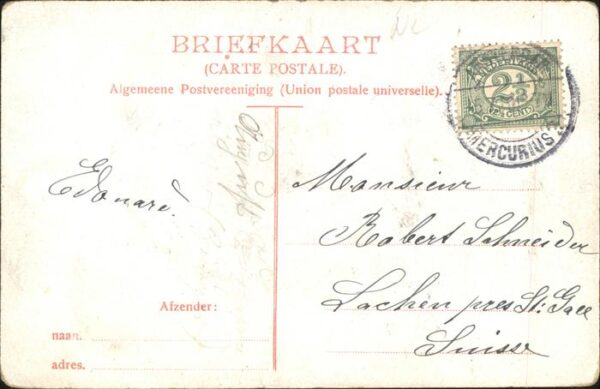 BRIEFKAART
(CARTE POSTALE).
Algemeene Postvereeniging (Union postale universelle).
2½
CENT
MERCURIUS
Edouard.
Monsieur
Robert Schneider
Lachen près St: Gall
Suisse
Afzender:
naam.
adres.